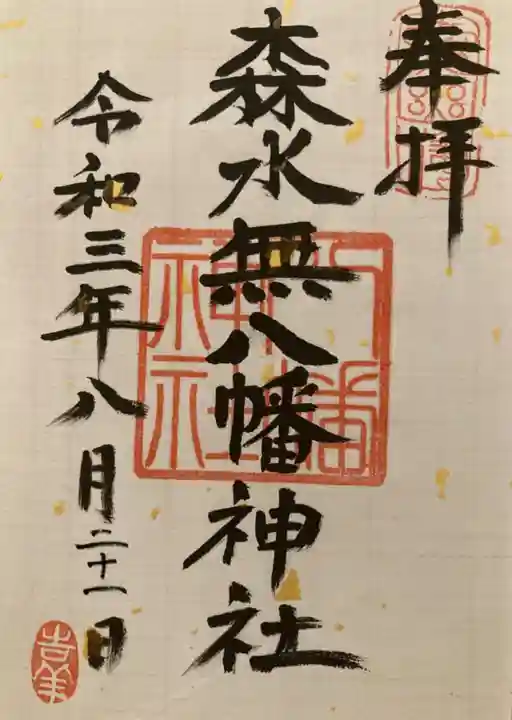 奉拝
森水無八幡神社
令和三年八月二十一日